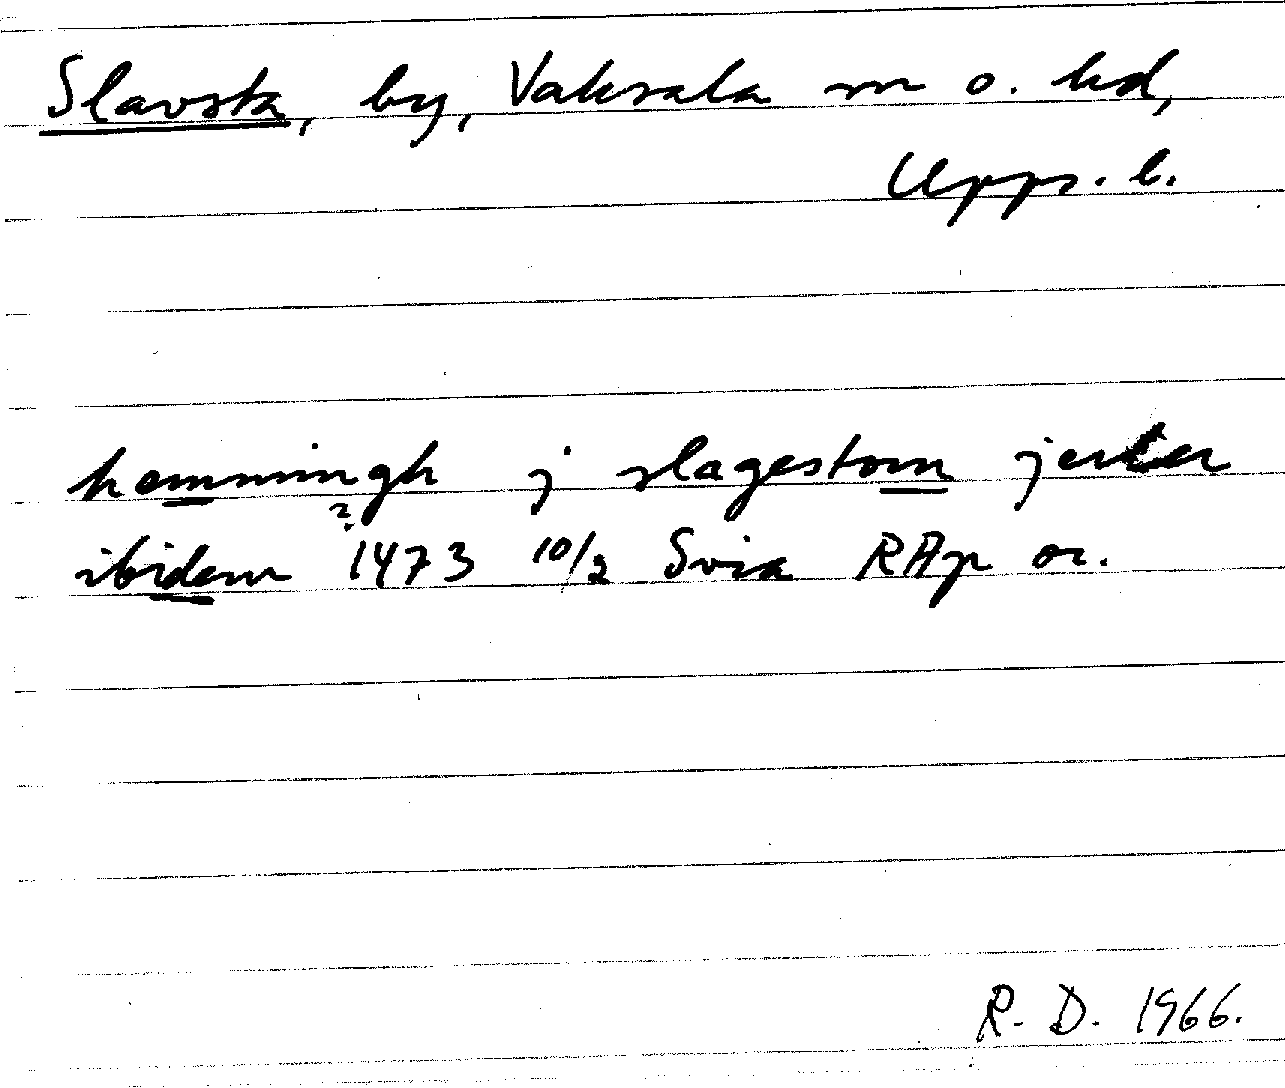 Slavsta, by, Vaksala sn o. hd,
Upps. l.
hemmingh j slagestom jerler
?
ibidem 1473 10/2 Svia RAp or.
R. D. 1966.